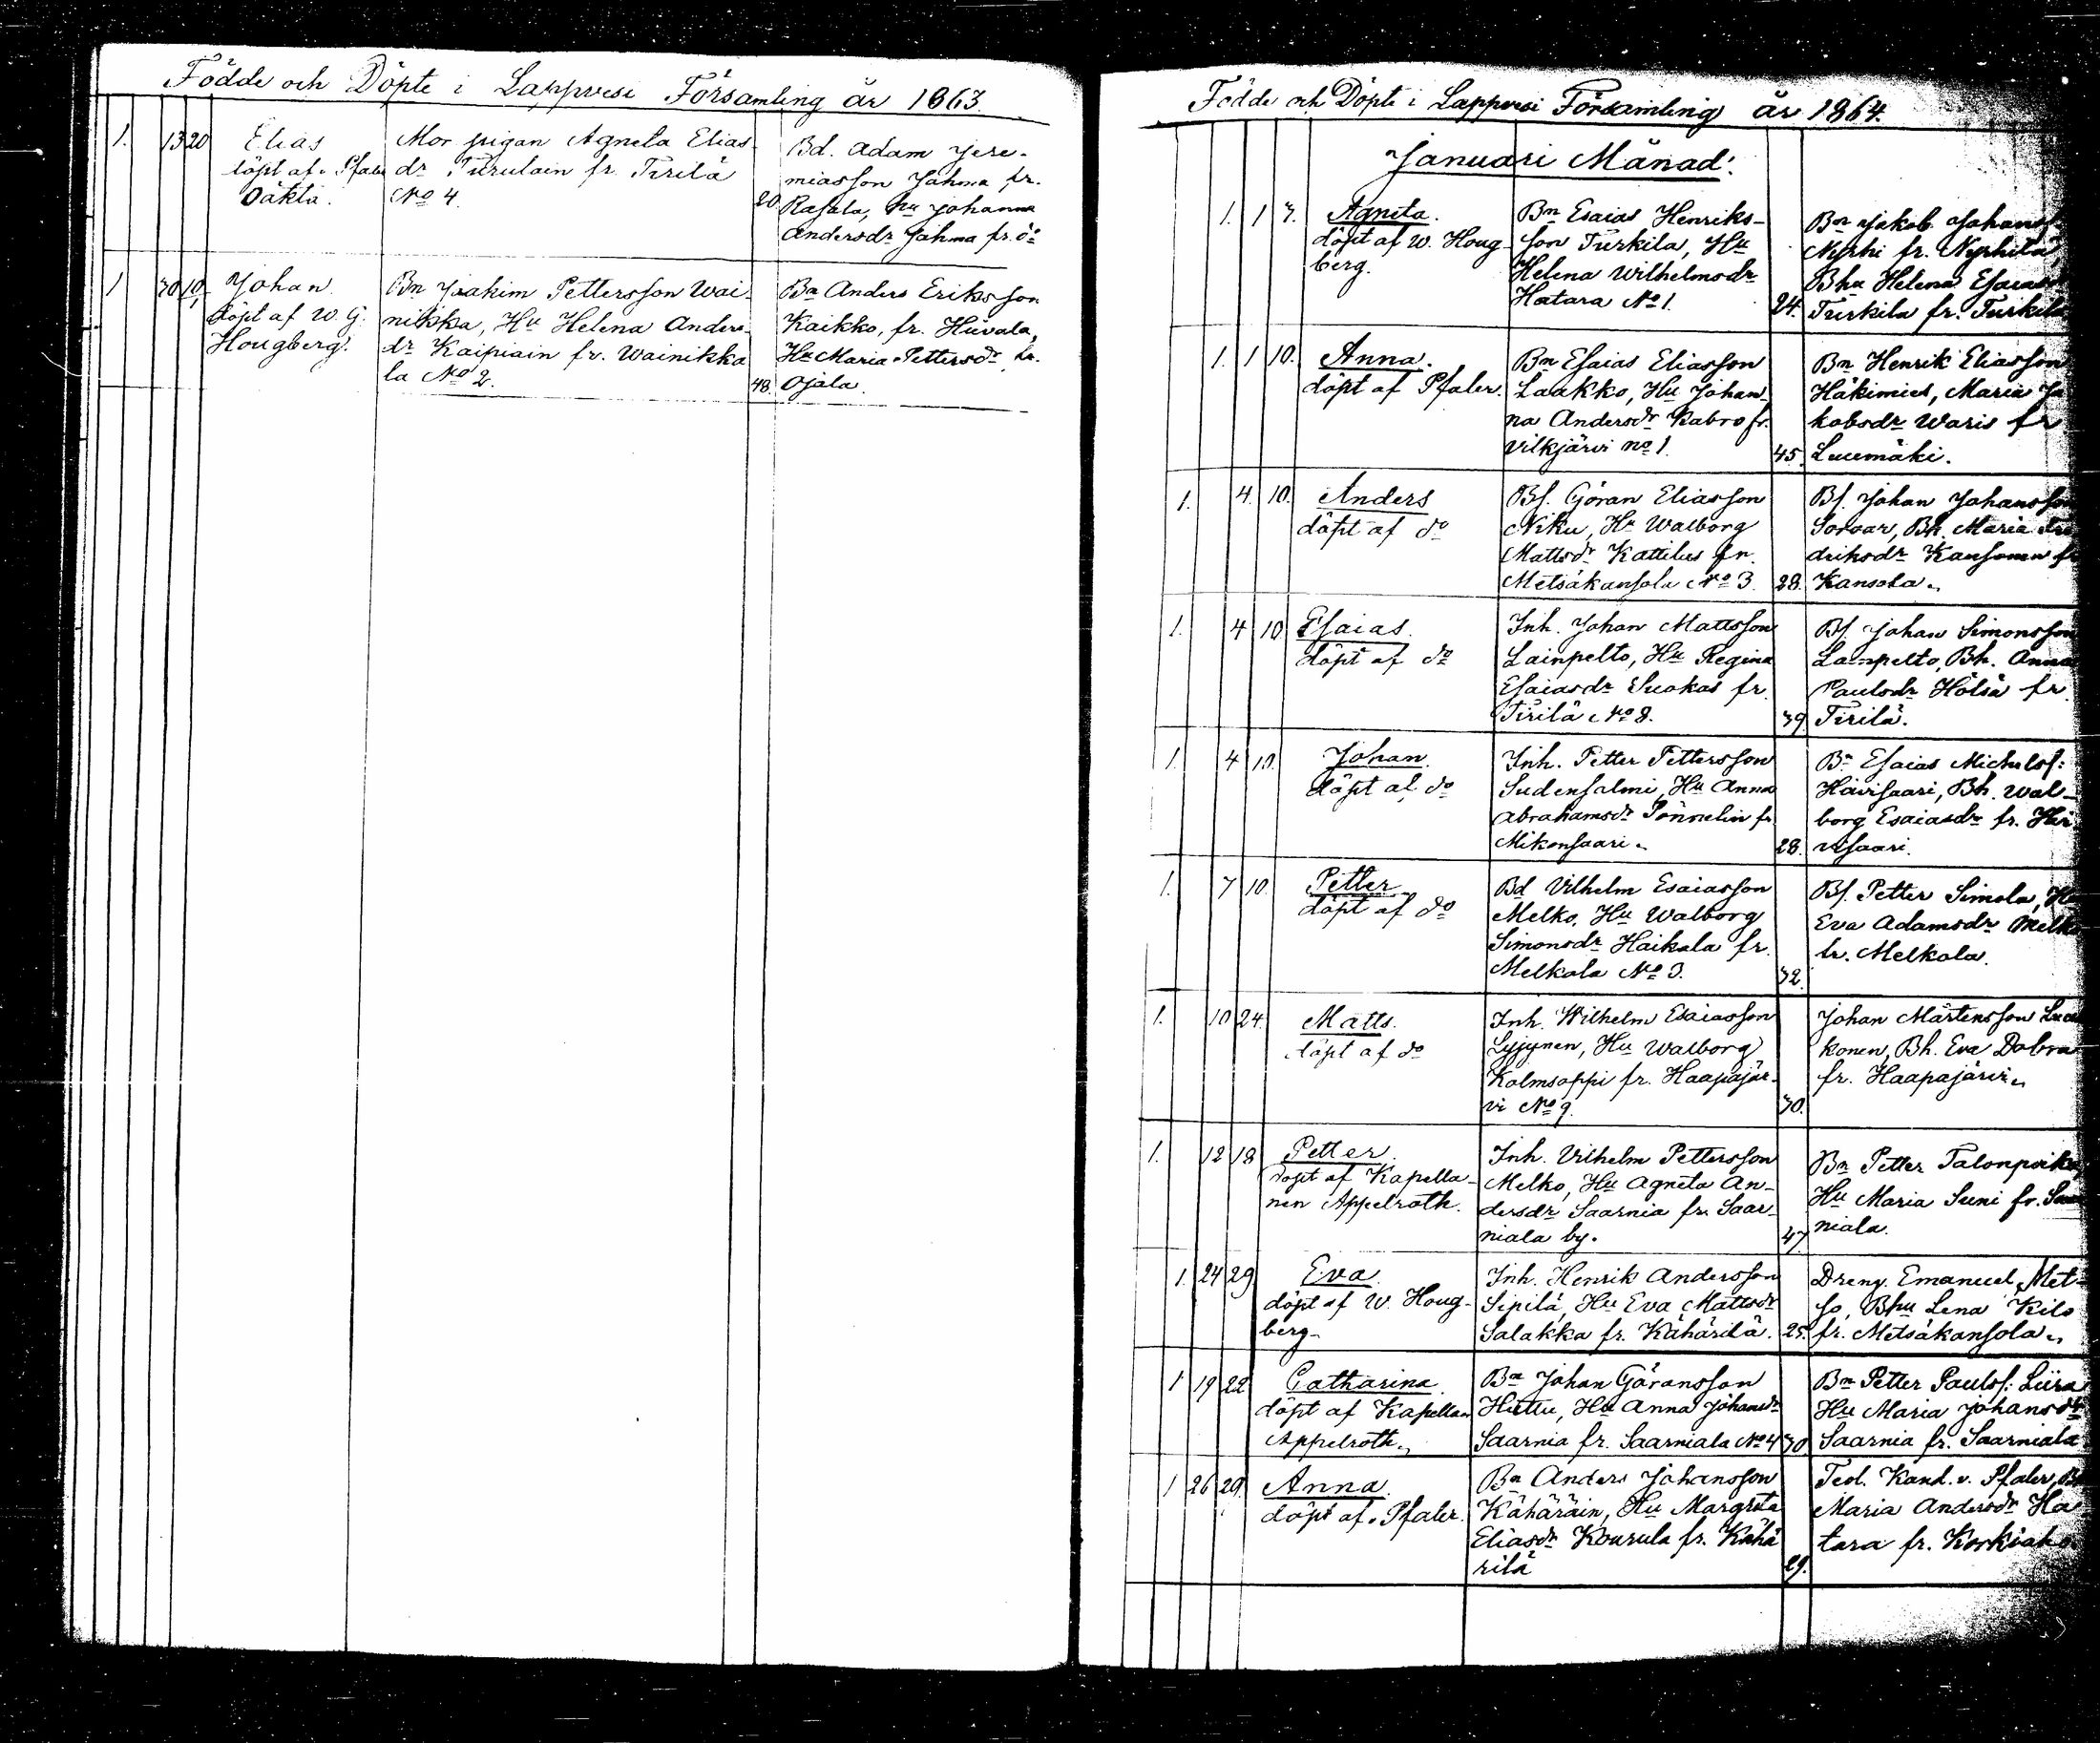 Födde och Döpte i Lappvesi Församling år 1863.
1. 13 20 Elias
döpt af v. Pfaler
Oäkta.
Mor pigan Agneta Elias-
dr Turulain fr. Tirilä
No 4.
20
Bd. Adam Jere-
miasson Jahma fr.
Rasala, Hu Johanna
Andersdr Jahma fr. do
1 30 10/1 Johan.
döpt af W. G.
Hougberg.
Bn Joakim Pettersson Wai-
nikka, Hu Helena Anders-
dr Kaipiain fr. Wainikka
la No 2.
48.
Bn Anders Eriksson
Kaikko, fr. Hüvala,
Hu Maria Pettersdr fr.
Ojala.
Födde och Döpte i Lappvesi Församling år 1864.
Januari Månad.
1. 1 7. Agneta.
döpt af W. Houg-
berg.
Bn Esaias Henriks-
son Turkila, Hu
Helena Wilhelmsdr
Hatara No 1.
24.
Bn Jakob Johanss.
Nyrhi fr. Nyrhilä,
Bhu Helena Esaiasdr
Turkila fr. Turkila
1. 1 10. Anna.
döpt af Pfaler.
Bn Esaias Eliasson
Laakko, Hu Johan-
na Andersdr Kabro fr.
Vilkjärvi no 1.
45.
Bn Henrik Eliasson
Häkimies, Maria Ja
kobsdr Waris fr
Luumäki.
1. 4. 10. Anders
döpt af do
Bf. Göran Eliasson
Niku, Hu Walborg
Mattsdr Kattilus fr.
Metsäkansola No 3.
28.
Bf. Johan Johansson
Sorvar, Bh. Maria Fre
driksdr Kansonen fr
Kansola.
1. 4 10 Esaias.
döpt af do
Inh. Johan Mattsson
Lainpelto, Hu Regina
Esaiasdr Suokas fr.
Tirilä No 8.
39.
Bf. Johan Simonsson
Lainpelto, Bh. Anna
Paulsdr Hölsä fr
Tirilä.
1. 4 10. Johan.
döpt af do
Inh. Petter Pettersson
Sudensalmi, Hu Anna
Abrahamsdr Pönnelin fr.
Mikonsaari.
28.
Bn Esaias Michelsf:
Hävisaari, Bh. Wal-
borg Esaiasdr fr. Hä-
visaari.
1. 7 10. Petter
döpt af do
Bd Vilhelm Esaiasson
Melko, Hu Walborg
Simonsdr Haikala fr.
Melkola No 3.
32.
Bf. Petter Simola, Hu
Eva Adamsdr Melko
fr. Melkola.
1. 10 24. Matts.
döpt af do
Inh. Wilhelm Esaiasson
Lyjynen, Hu Walborg
Kolmsoppi fr. Haapajär-
vi No 9.
30.
Johan Mårtensson Luu
konen, Bh. Eva Dabra
fr. Haapajärvi.
1. 12 18 Petter.
döpt af Kapella-
nen Appelroth.
Inh. Vilhelm Pettersson
Melko, Hu Agneta An-
dersdr Saarnia fr. Saar-
niala by.
47.
Bn Petter Talonpoika
Hu Maria Suni fr. Saar
niala.
1. 24 29 Eva.
döpt af W. Houg-
berg.
Inh. Henrik Andersson
Sipilä, Hu Eva Mattsdr
Salakka fr. Kähärilä.
25.
Dreng. Emanuel Met-
so, Bhu Lena Kilo
fr. Metsäkansola.
1 19 22 Catharina.
döpt af Kapellan
Appelroth.
Bn Johan Göransson
Huttu, Hu Anna Johansdr
Saarnia fr. Saarniala No 4
30
Bn Petter Paulsf: Liira
Hu Maria Johansdr
Saarnia fr. Saarniala
1 26 29. Anna.
döpt af v. Pfaler.
Bn Anders Johansson
Kähäräin, Hu Margreta
Eliasdr Kourula fr. Kähä
rilä
29.
Teol. Kand. v. Pfaler, Bh
Maria Andersdr Ha
tara fr. Korkiaho